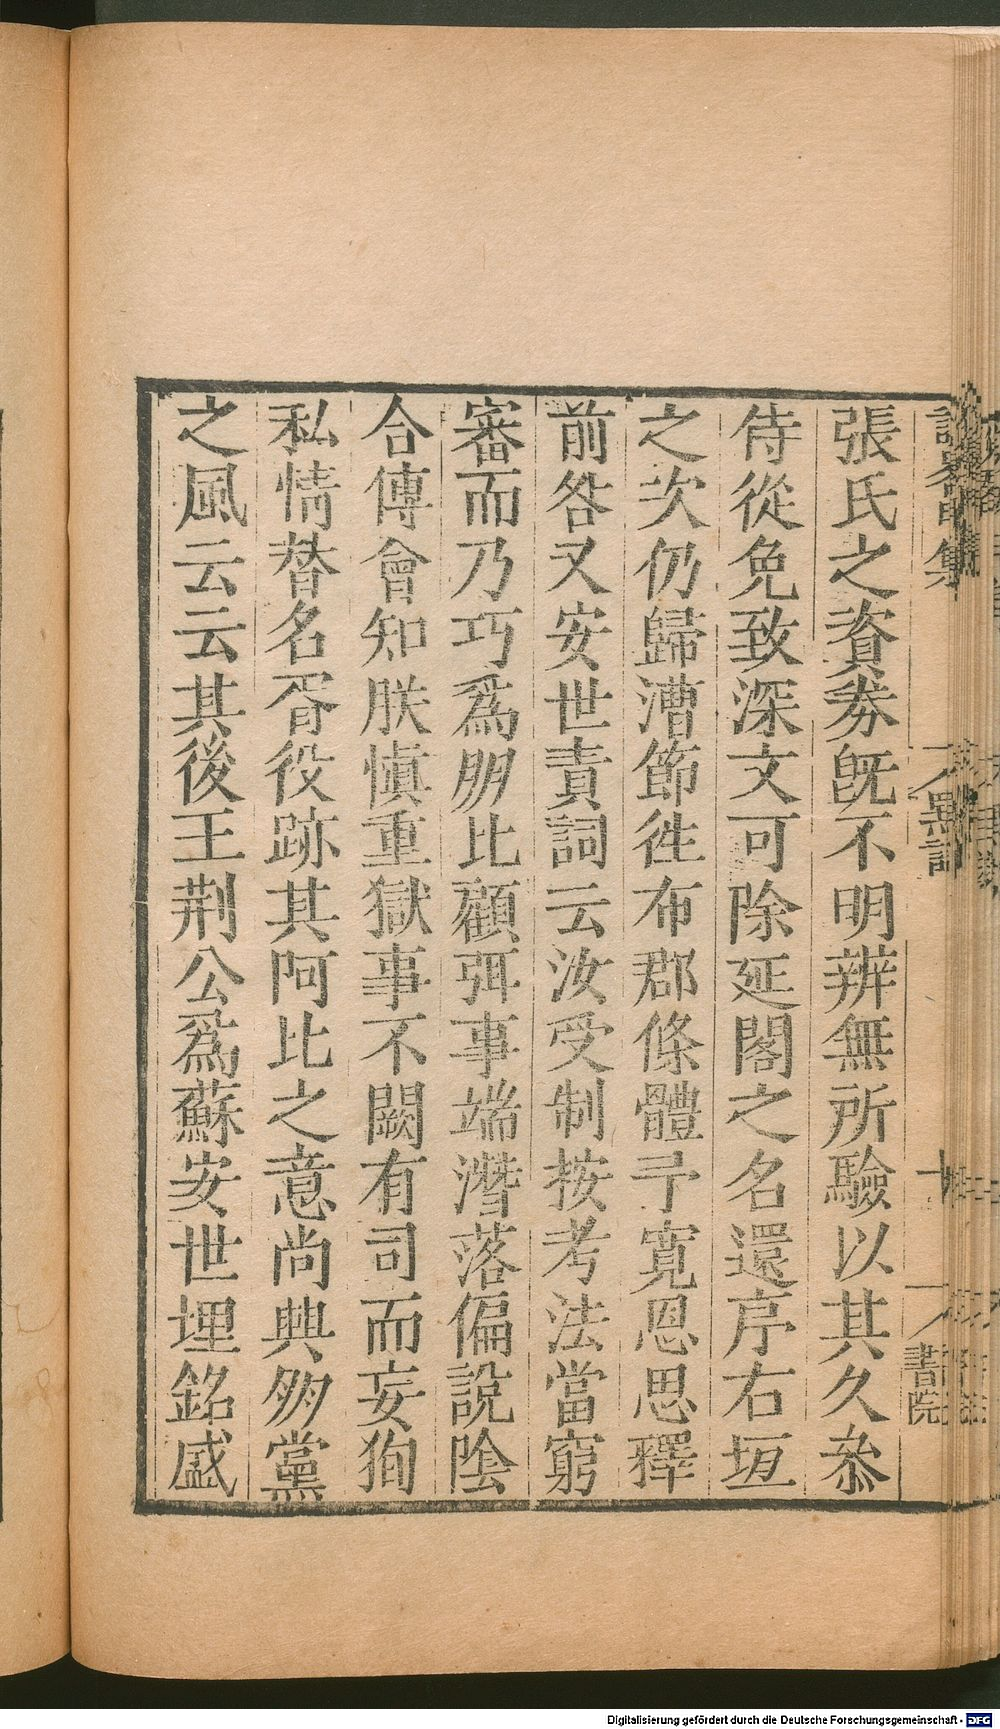 張氏之資劵旣不明辨無所驗以其久叅
侍從免致深文可除延閣之名還序右垣
之次仍歸漕節徃布郡條體予寬恩思釋
前咎又安世責詞云汝受制按考法當窮
審而乃巧爲朋比顧弭事端潛落偏說陰
合傅會知朕愼重獄事不闕有司而妄狥
私情替名胥役跡其阿比之意尚興朋黨
之風云云其後王荆公爲蘇安世埋銘盛
書院
Digitalisierung gefördert durch die Deutsche Forschungsgemeinschaft - DFG